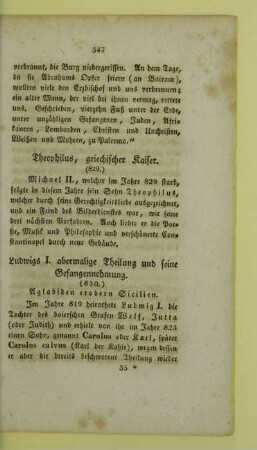 547
verbrannt, die Burg niedergerissen. An dem Tage,
da sie Abrahams Opfer feiern (an Bairam),
wollten viele den Erzbischof und uns verbrennen;
ein alter Mann, der viel bei ihnen vermag, rettete
uns. Geschrieben, vierzehn Fuß unter der Erde,
unter unzähligen Gefangenen, Juden, Afri-
kanern, Lombarden, Christen und Unchristen,
Weißen und Mohren, zu Palermo.“
Theophilus, griechischer Kaiser.
(829.)
Michael II., welcher im Jahre 829 starb,
folgte in diesem Jahre sein Sohn Theophilus,
welcher durch seine Gerechtigkeitsliebe ausgezeichnet,
und ein Feind des Bilderdienstes war, wie seine
drei nächsten Vorfahren. Auch liebte er die Poe-
sie, Musik und Philosophie und verschönerte Con-
stantinopel durch neue Gebäude.
Ludwigs I. abermalige Theilung und seine
Gefangennehmung.
(830.)
Aglabiden erobern Sicilien.
Im Jahre 819 heirathete Ludwig I. die
Tochter des baierschen Grafen Welf, Jutta
(oder Judith) und erhielt von ihr im Jahre 823
einen Sohn, genannt Carolus oder Karl, später
Carolus calvus (Karl der Kahle), wegen dessen
er aber die bereits beschworene Theilung wieder
35 *